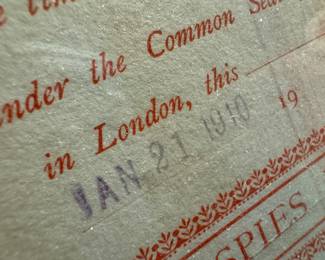 under the Common Seal
in London, this 19
JAN 21 1910
SPIES